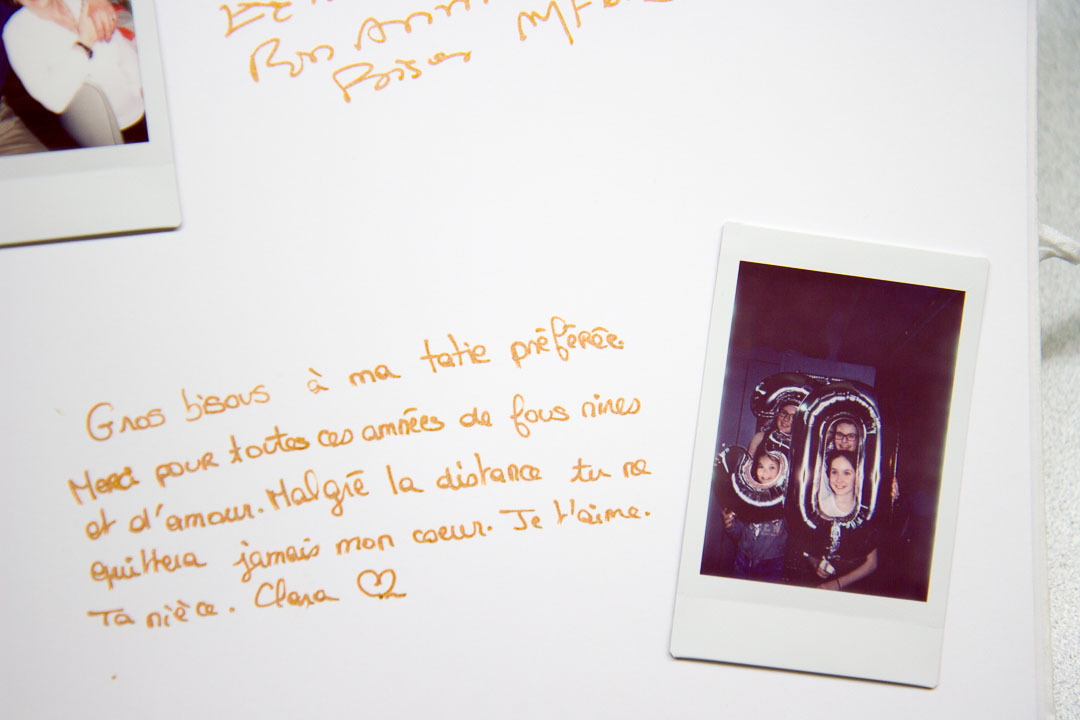 Bon Anni
Bisous
Gros bisous à ma tatie préférée.
Merci pour toutes ces années de fous rires
et d'amour. Malgré la distance tu ne
quittera jamais mon coeur. Je t'aime.
Ta nièce. Clara ♡
30